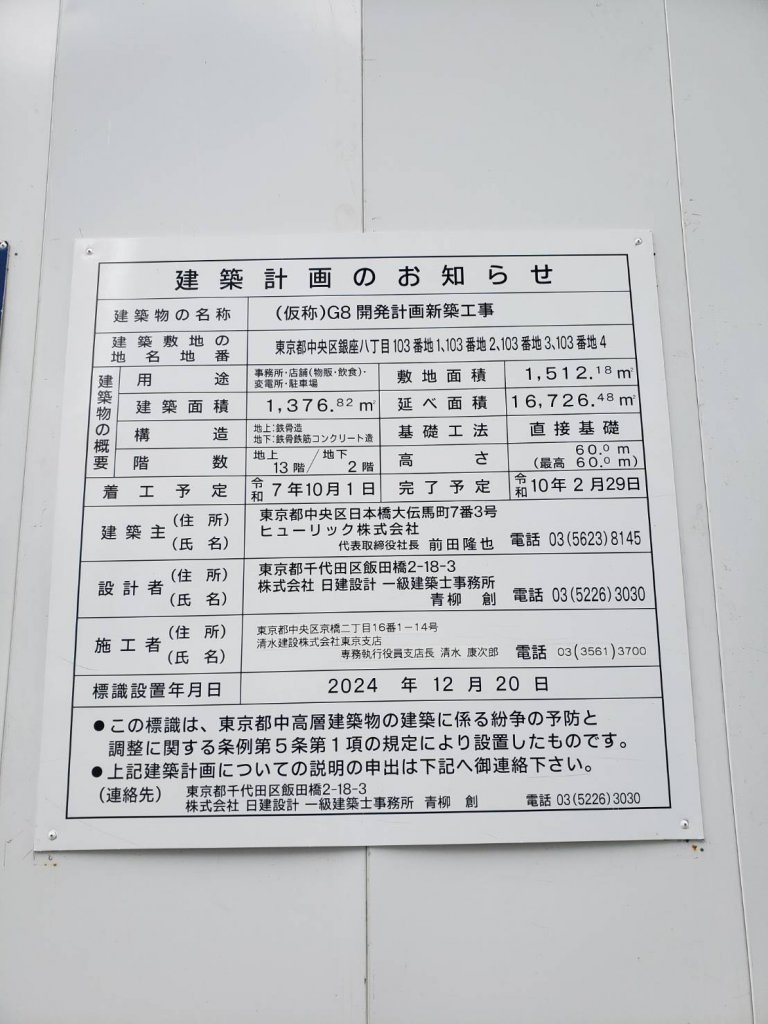 建築計画のお知らせ
建築物の名称 (仮称)G8開発計画新築工事
建築敷地の地名地番 東京都中央区銀座八丁目103番地1、103番地2、103番地3、103番地4
建築物の概要
用途 事務所・店舗(物販・飲食)・変電所・駐車場 敷地面積 1,512.18㎡
建築面積 1,376.82㎡ 延べ面積 16,726.48㎡
構造 地上:鉄骨造 地下:鉄骨鉄筋コンクリート造 基礎工法 直接基礎
階数 地上13階/地下2階 高さ 60.0m (最高 60.0m)
着工予定 令和7年10月1日 完了予定 令和10年2月29日
建築主 (住所) (氏名)
東京都中央区日本橋大伝馬町7番3号
ヒューリック株式会社
代表取締役社長 前田隆也 電話 03(5623)8145
設計者 (住所) (氏名)
東京都千代田区飯田橋2-18-3
株式会社 日建設計 一級建築士事務所
青柳 創 電話 03(5226)3030
施工者 (住所) (氏名)
東京都中央区京橋二丁目16番1-14号
清水建設株式会社東京支店
専務執行役員支店長 清水 康次郎 電話 03(3561)3700
標識設置年月日 2024年12月20日
●この標識は、東京都中高層建築物の建築に係る紛争の予防と
調整に関する条例第5条第1項の規定により設置したものです。
●上記建築計画についての説明の申出は下記へ御連絡下さい。
(連絡先) 東京都千代田区飯田橋2-18-3
株式会社 日建設計 一級建築士事務所 青柳 創 電話 03(5226)3030